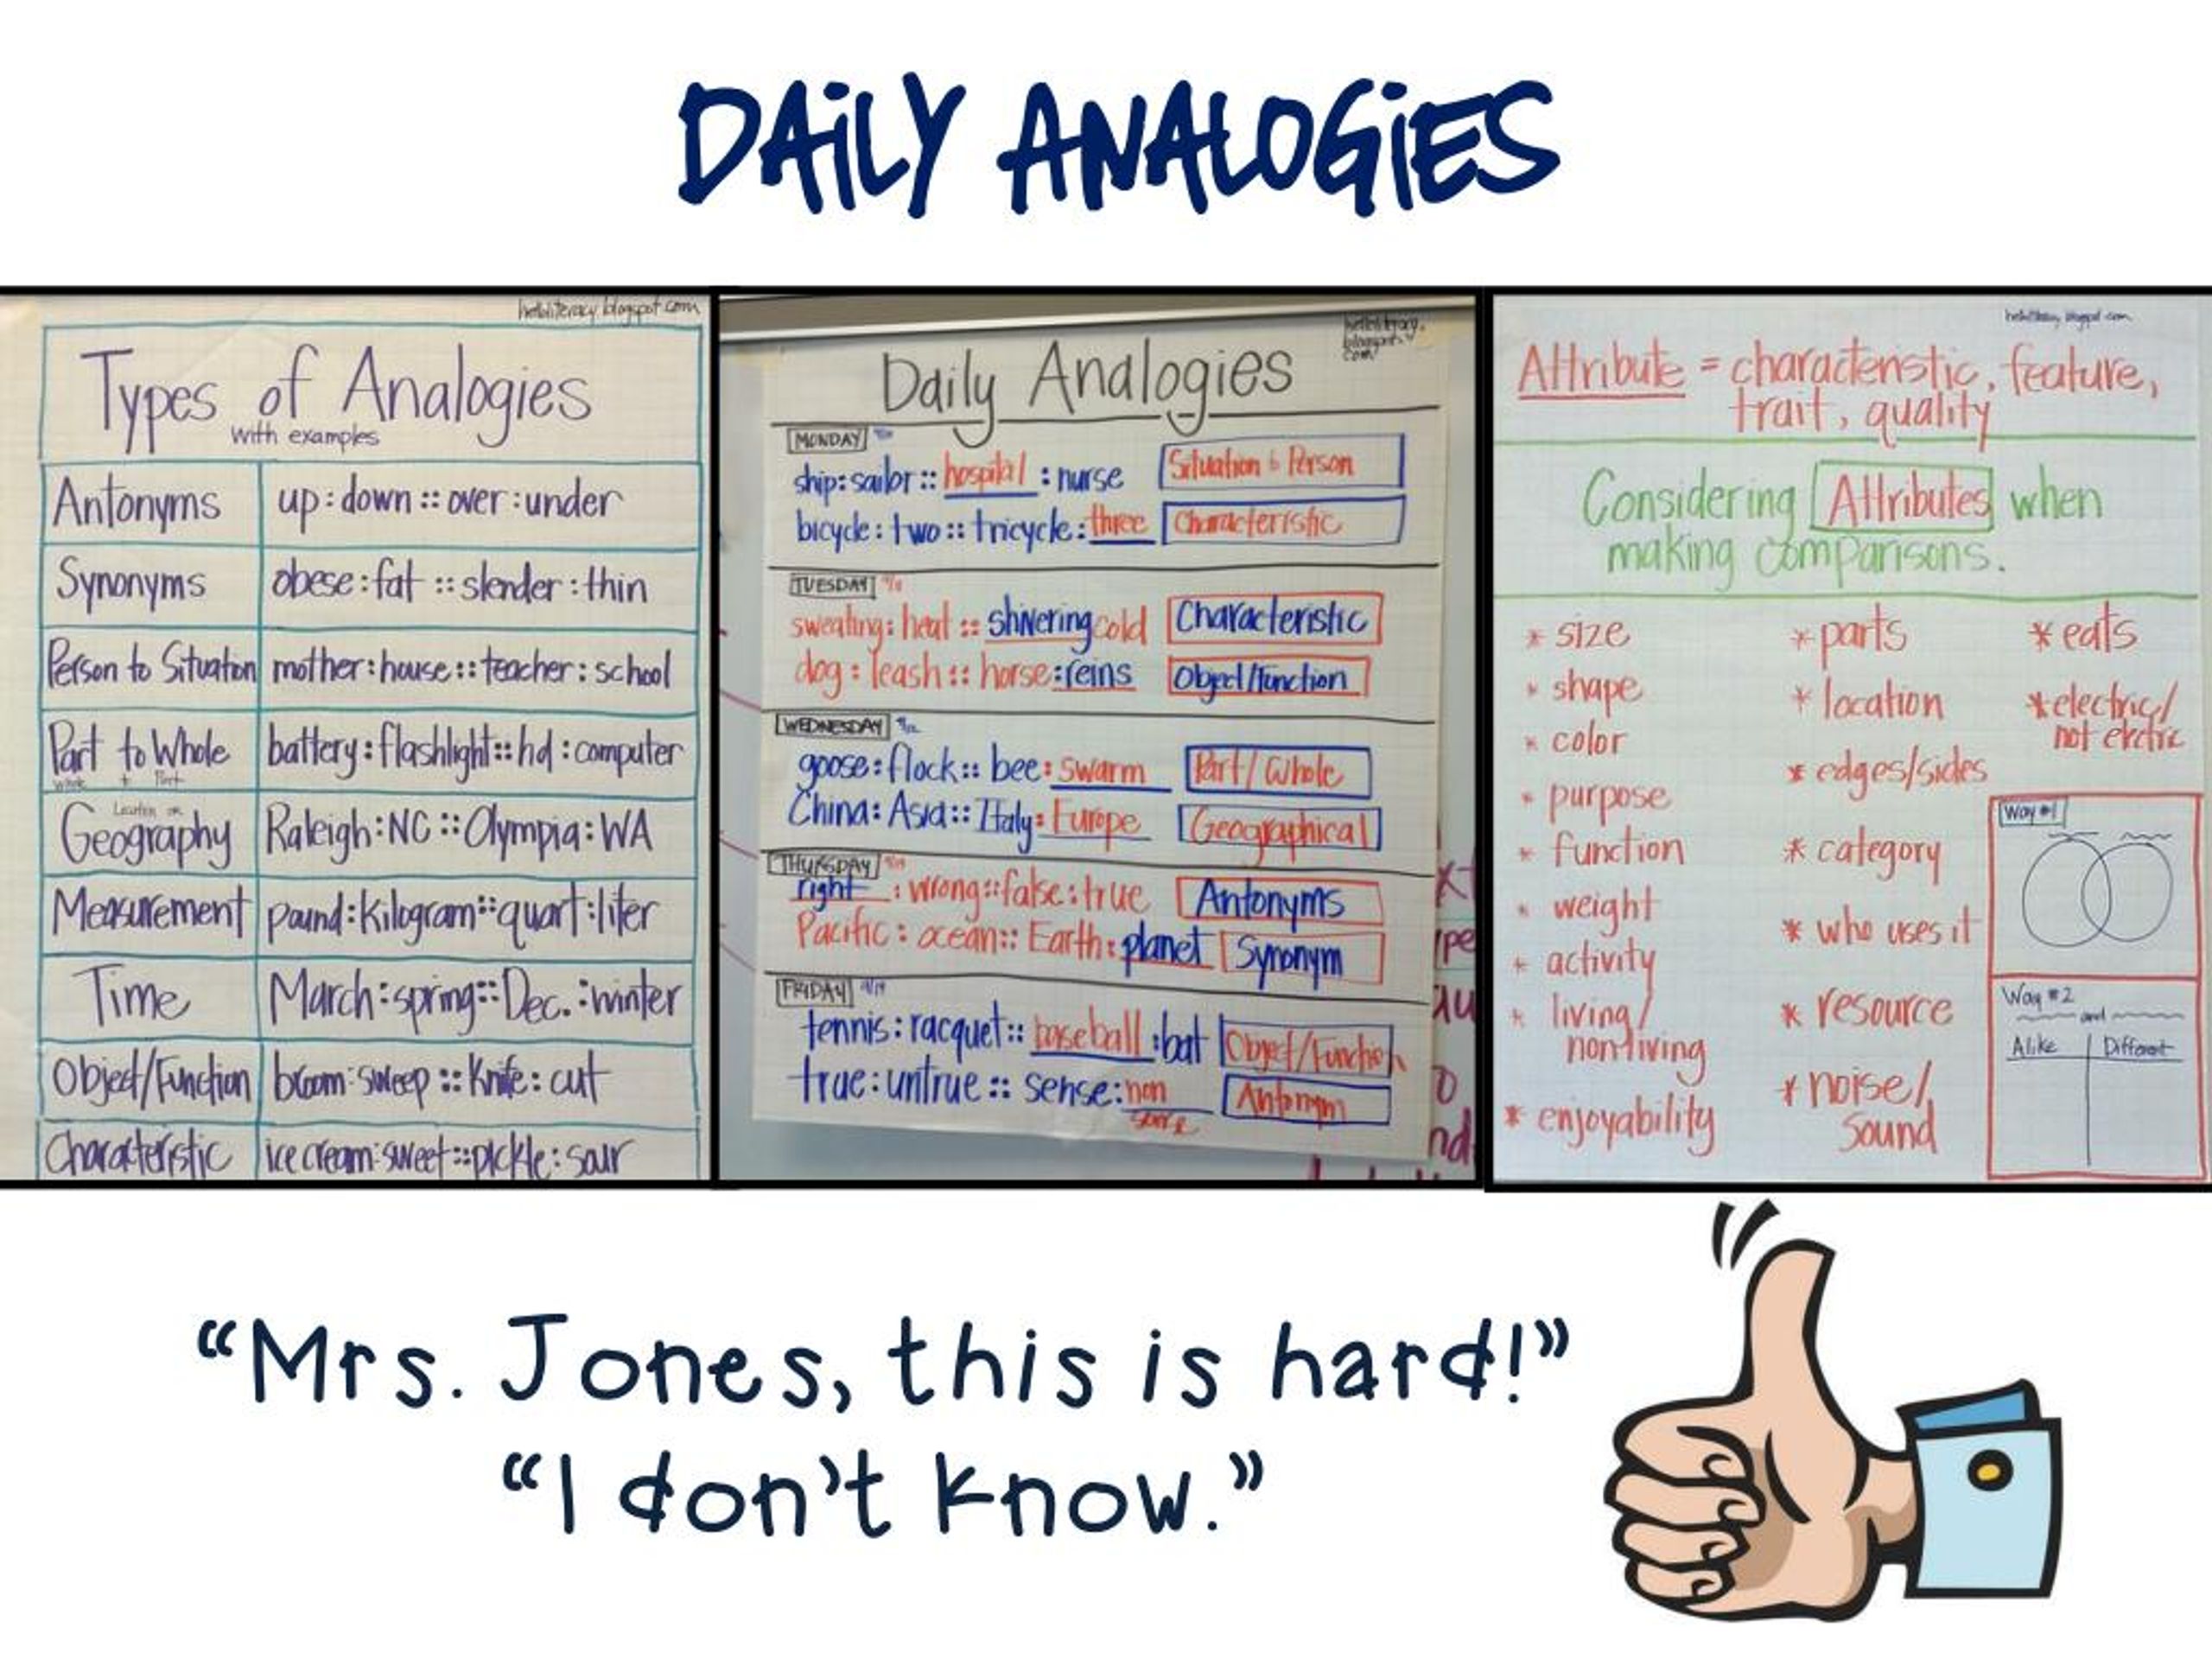 DAiLY ANALOGiES
helloliteracy.blogspot.com
Types of Analogies
with examples
Antonyms up:down::over:under
Synonyms obese:fat::slender:thin
Person to Situation mother:house::teacher:school
Part to Whole battery:flashlight::hd:computer
Whole to Part
Location or
Geography Raleigh:NC::Olympia:WA
Measurement pound:kilogram::quart:liter
Time March:spring::Dec.:winter
Object/Function broom:sweep::knife:cut
Characteristic ice cream:sweet::pickle:sour
helloliteracy.
blogspot.
com
Daily Analogies
MONDAY
ship:sailor::hospital:nurse Situation to Person
bicycle:two::tricycle:three Characteristic
TUESDAY
sweating:heat::shivering cold Characteristic
dog:leash::horse:reins Object/Function
WEDNESDAY
goose:flock::bee:swarm Part/Whole
China:Asia::Italy:Europe Geographical
THURSDAY
right:wrong::false:true Antonyms
Pacific:ocean::Earth:planet Synonym
FRIDAY
tennis:racquet::baseball:bat Object/Function
true:untrue::sense:non
sense Antonym
helloliteracy.blogspot.com
Attribute = characteristic, feature,
trait, quality
Considering Attributes when
making comparisons.
* size
* shape
* color
* purpose
* function
* weight
* activity
* living/
nonliving
* enjoyability
* parts
* location
* edges/sides
* category
* who uses it
* resource
* noise/
sound
* eats
* electric/
not electric
Way #1
Way #2
and
Alike Different
“Mrs. Jones, this is hard!”
“I don’t know.”